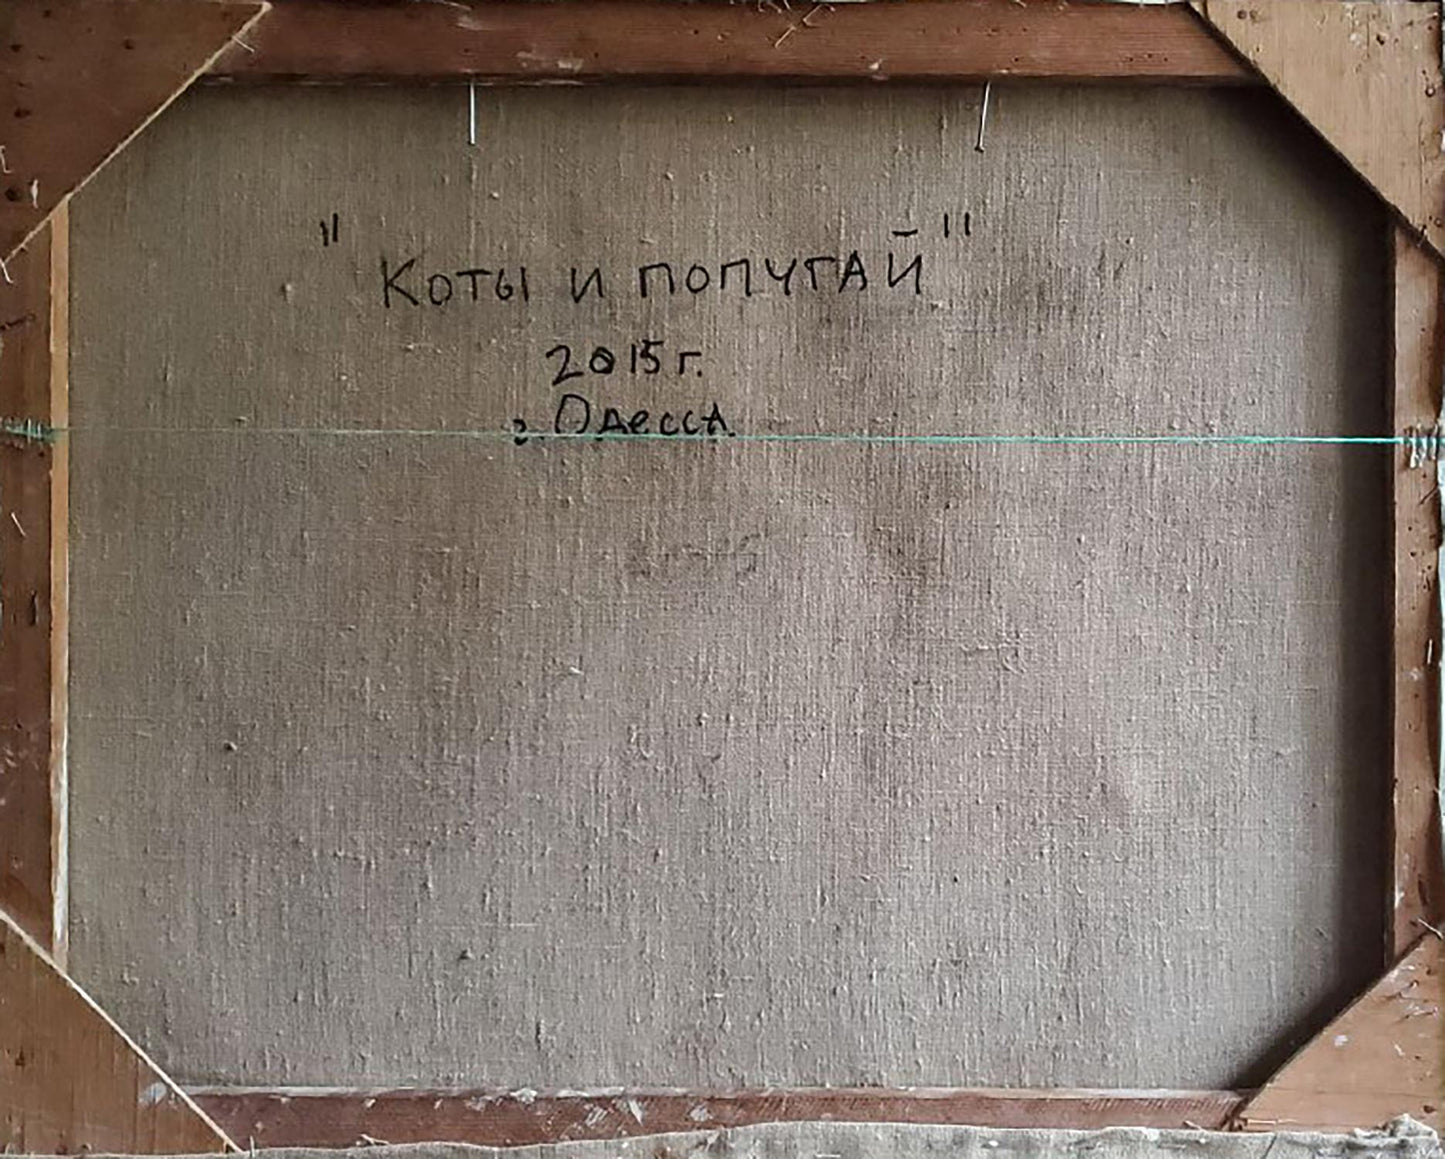 "Коты и попугай"
2015 г.
г. Одесса.